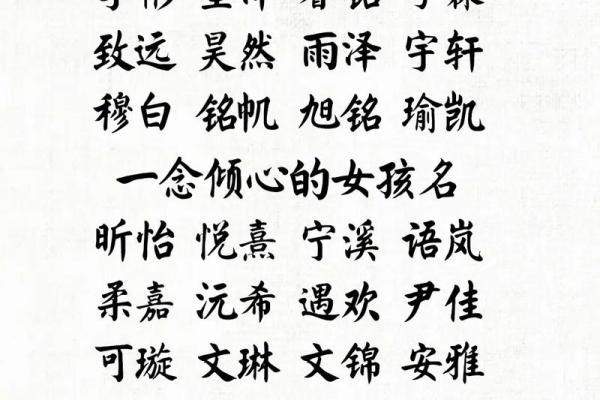 致远 昊然 雨泽 宇轩
穆白 铭帆 旭铭 瑜凯
一念倾心的女孩名
昕怡 悦熹 宁溪 语岚
柔嘉 沅希 遇欢 尹佳
可璇 文琳 文锦 安雅